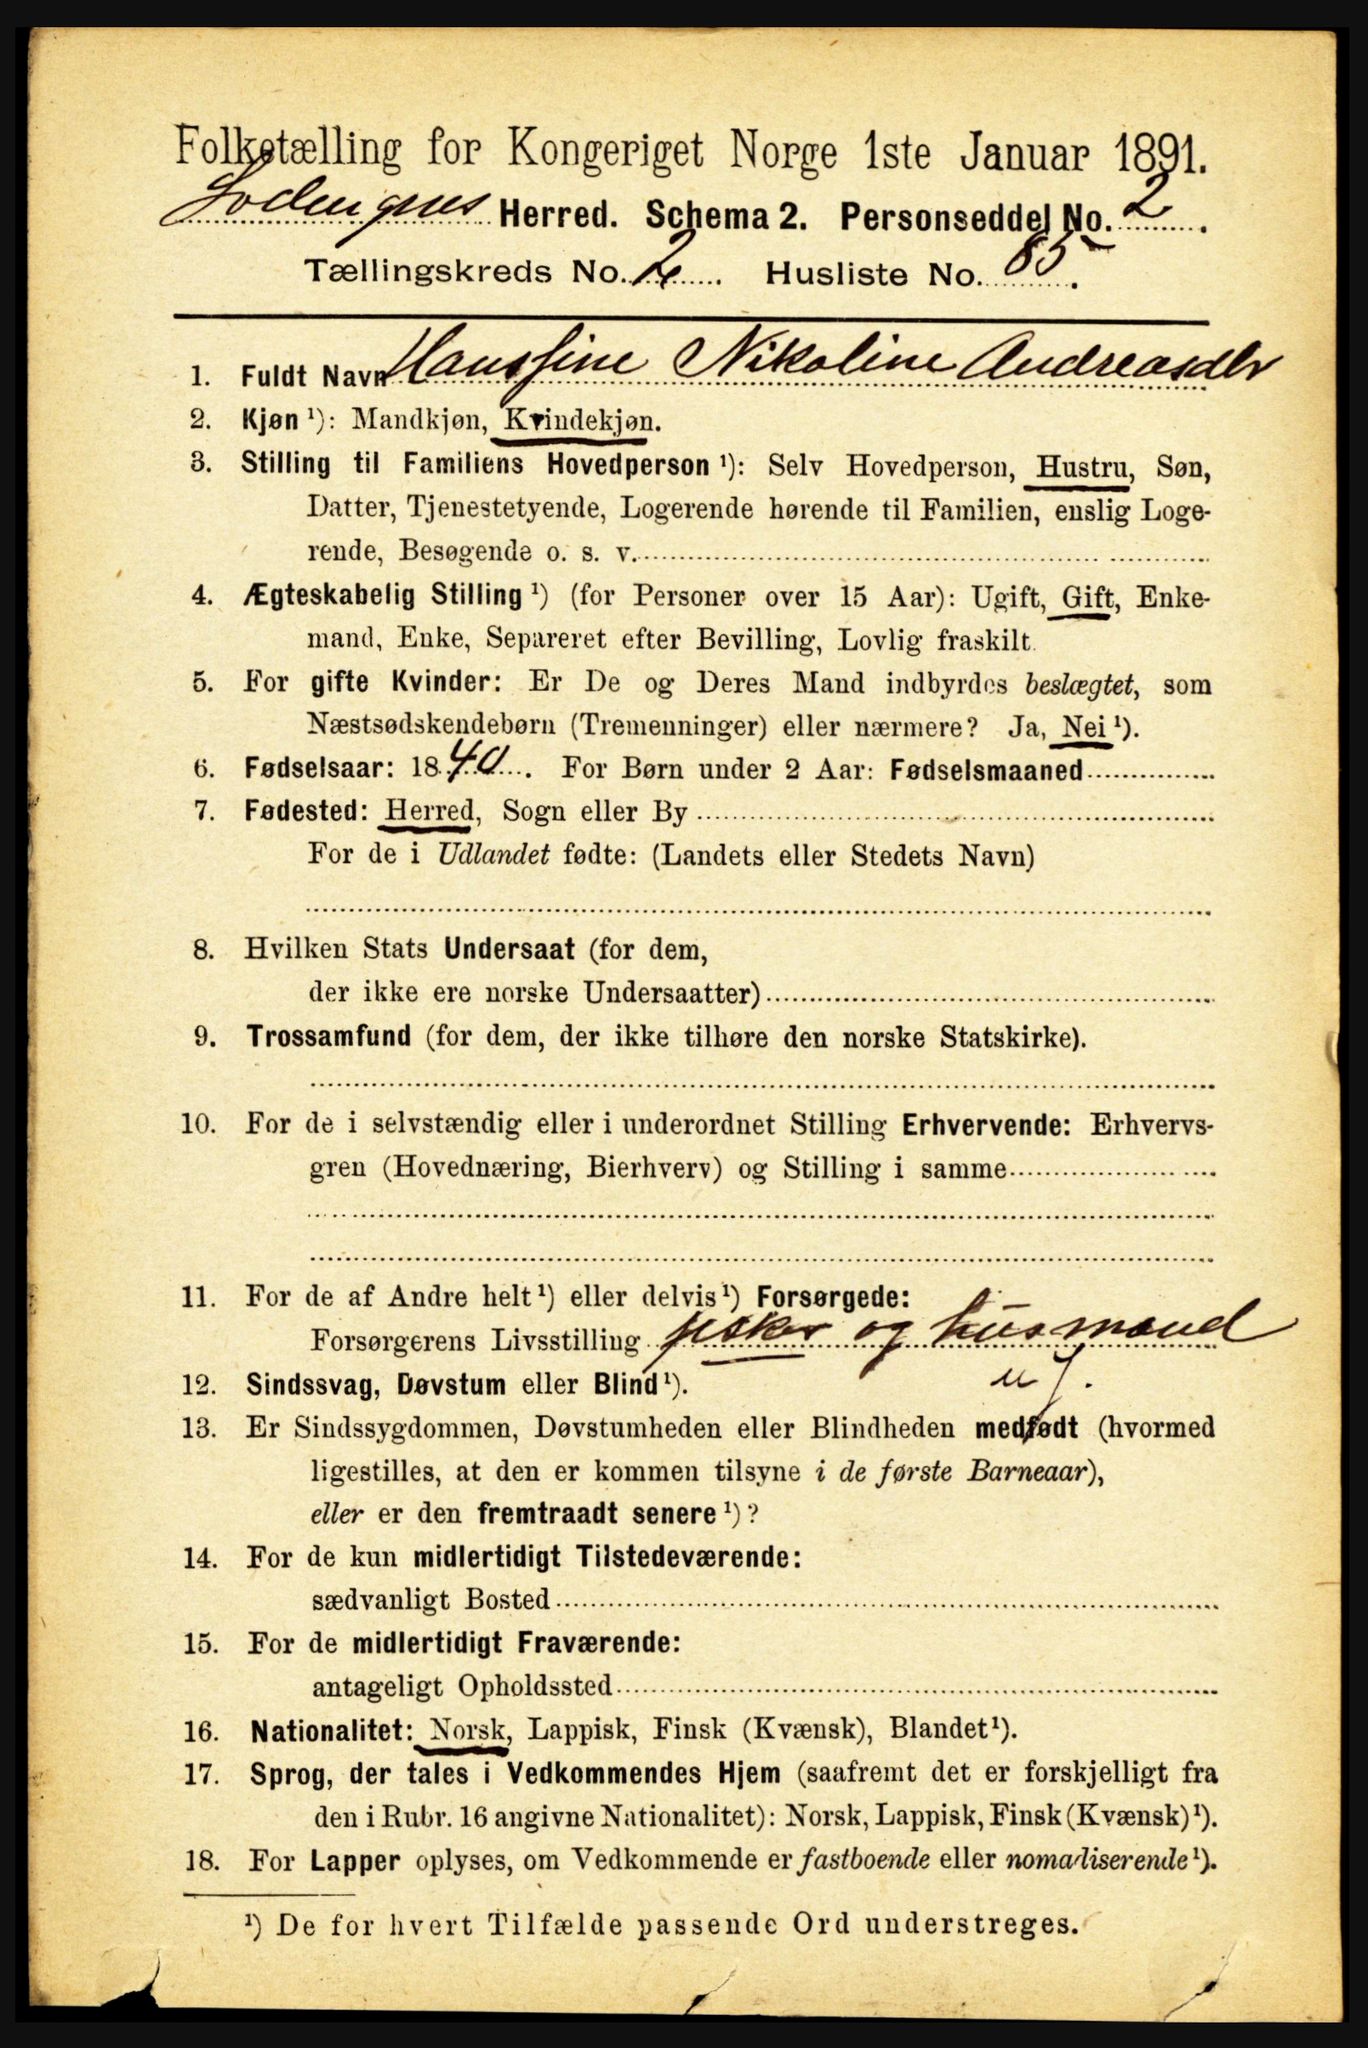 Folketælling for Kongeriget Norge 1ste Januar 1891.
Lodengens Herred. Schema 2. Personseddel No. 2.
Tællingskreds No. 2. Husliste No. 85.
1. Fuldt Navn Hansine Nikoline Andreasdtr
2. Kjøn ¹): Mandkjøn, Kvindekjøn.
3. Stilling til Familiens Hovedperson ¹): Selv Hovedperson, Hustru, Søn,
Datter, Tjenestetyende, Logerende hørende til Familien, enslig Loge-
rende, Besøgende o. s. v.
4. Ægteskabelig Stilling ¹) (for Personer over 15 Aar): Ugift, Gift, Enke-
mand, Enke, Separeret efter Bevilling, Lovlig fraskilt.
5. For gifte Kvinder: Er De og Deres Mand indbyrdes beslægtet, som
Næstsødskendebørn (Tremenninger) eller nærmere? Ja, Nei ¹).
6. Fødselsaar: 1840. For Børn under 2 Aar: Fødselsmaaned
7. Fødested: Herred, Sogn eller By
For de i Udlandet fødte: (Landets eller Stedets Navn)
8. Hvilken Stats Undersaat (for dem,
der ikke ere norske Undersaatter)
9. Trossamfund (for dem, der ikke tilhøre den norske Statskirke).
10. For de i selvstændig eller i underordnet Stilling Erhvervende: Erhvervs-
gren (Hovednæring, Bierhverv) og Stilling i samme
11. For de af Andre helt ¹) eller delvis ¹) Forsørgede:
Forsørgerens Livsstilling fisker og husmand
12. Sindssvag, Døvstum eller Blind ¹). u J.
13. Er Sindssygdommen, Døvstumheden eller Blindheden medfødt (hvormed
ligestilles, at den er kommen tilsyne i de første Barneaar),
eller er den fremtraadt senere ¹)?
14. For de kun midlertidigt Tilstedeværende:
sædvanligt Bosted
15. For de midlertidigt Fraværende:
antageligt Opholdssted
16. Nationalitet: Norsk, Lappisk, Finsk (Kvænsk), Blandet ¹).
17. Sprog, der tales i Vedkommendes Hjem (saafremt det er forskjelligt fra
den i Rubr. 16 angivne Nationalitet): Norsk, Lappisk, Finsk (Kvænsk) ¹).
18. For Lapper oplyses, om Vedkommende er fastboende eller nomadiserende ¹).
¹) De for hvert Tilfælde passende Ord understreges.